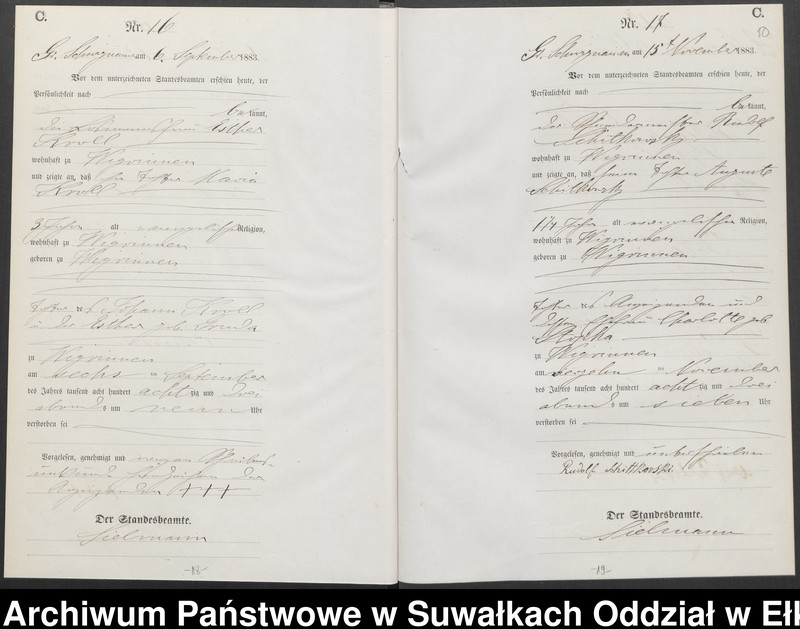 C.
Nr. 16
Gr. Schwignainen am 6. September 1883.
Vor dem unterzeichneten Standesbeamten erschien heute, der
Persönlichkeit nach
bekannt,
die Esther
Kroll
wohnhaft zu Wigrinnen
und zeigte an, daß ihre Tochter Maria
Kroll
3 Jahre alt evangelischer Religion,
wohnhaft zu Wigrinnen
geboren zu Wigrinnen
Tochter des Johann Kroll
u. der Esther geb.
zu Wigrinnen
am sechs ten September
des Jahres tausend acht hundert achtzig und drei
abends um neun Uhr
verstorben sei
Vorgelesen, genehmigt und wegen Schreibens-
unkunde
Anzeigenden +++
Der Standesbeamte.
Sielmann
-18-
C.
10
Nr. 17
Gr. Schwignainen am 15t November 1883.
Vor dem unterzeichneten Standesbeamten erschien heute, der
Persönlichkeit nach
bekannt,
der Rudolf
Schittkowsky
wohnhaft zu Wigrinnen
und zeigte an, daß seine Tochter Auguste
Schittkowsky
1¼ Jahr alt evangelischer Religion,
wohnhaft zu Wigrinnen
geboren zu Wigrinnen
Tochter des Anzeigenden und
dessen Ehefrau Charlotte geb.
zu Wigrinnen
am ten November
des Jahres tausend acht hundert achtzig und drei
abends um sieben Uhr
verstorben sei
Vorgelesen, genehmigt und unterschrieben
Rudolf Schittkowski
Der Standesbeamte.
Sielmann
-19-
Archiwum Państwowe w Suwałkach Oddział w Ełk